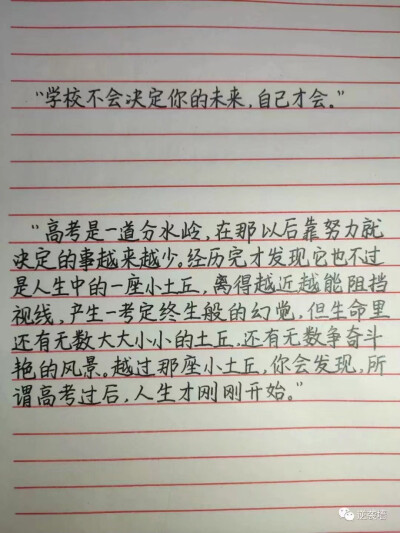 “学校不会决定你的未来，自己才会。”
“高考是一道分水岭，在那以后靠努力就
决定的事越来越少。经历完才发现它也不过
是人生中的一座小土丘，离得越近越能阻挡
视线，产生一考定终生般的幻觉，但生命里
还有无数大大小小的土丘，还有无数争奇斗
艳的风景。越过那座小土丘，你会发现，所
谓高考过后，人生才刚刚开始。”